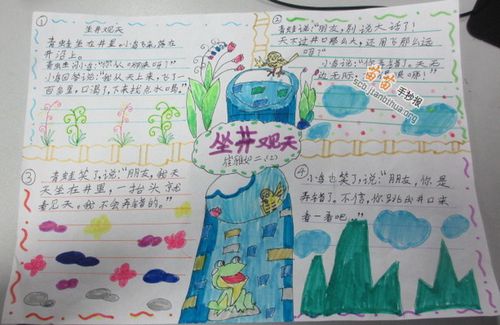 ①
坐井观天
青蛙坐在井里。小鸟飞来,落在
井沿上。
青蛙问小鸟:"你从哪儿来呀?"
小鸟回答说:"我从天上来,飞了一
百多里,口渴了,下来找点水喝。"
②
青蛙说:"朋友,别说大话了!
天不过井口那么大,还用飞那么远
吗?"
小鸟说:"你弄错了。天无
边无际,
很哪!"
手抄报
jianbihua.org
坐井观天
二.(2)
③
青蛙笑了,说:"朋友,我天
天坐在井里,一抬头就
看见天,我不会弄错的。"
④
小鸟也笑了,说:"朋友,你是
弄错了。不信,你跳出井口来
看一看吧。"